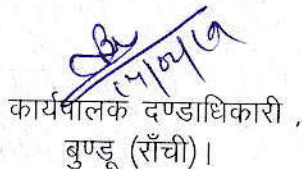 कार्यपालक दण्डाधिकारी,
बुण्डू (राँची)।